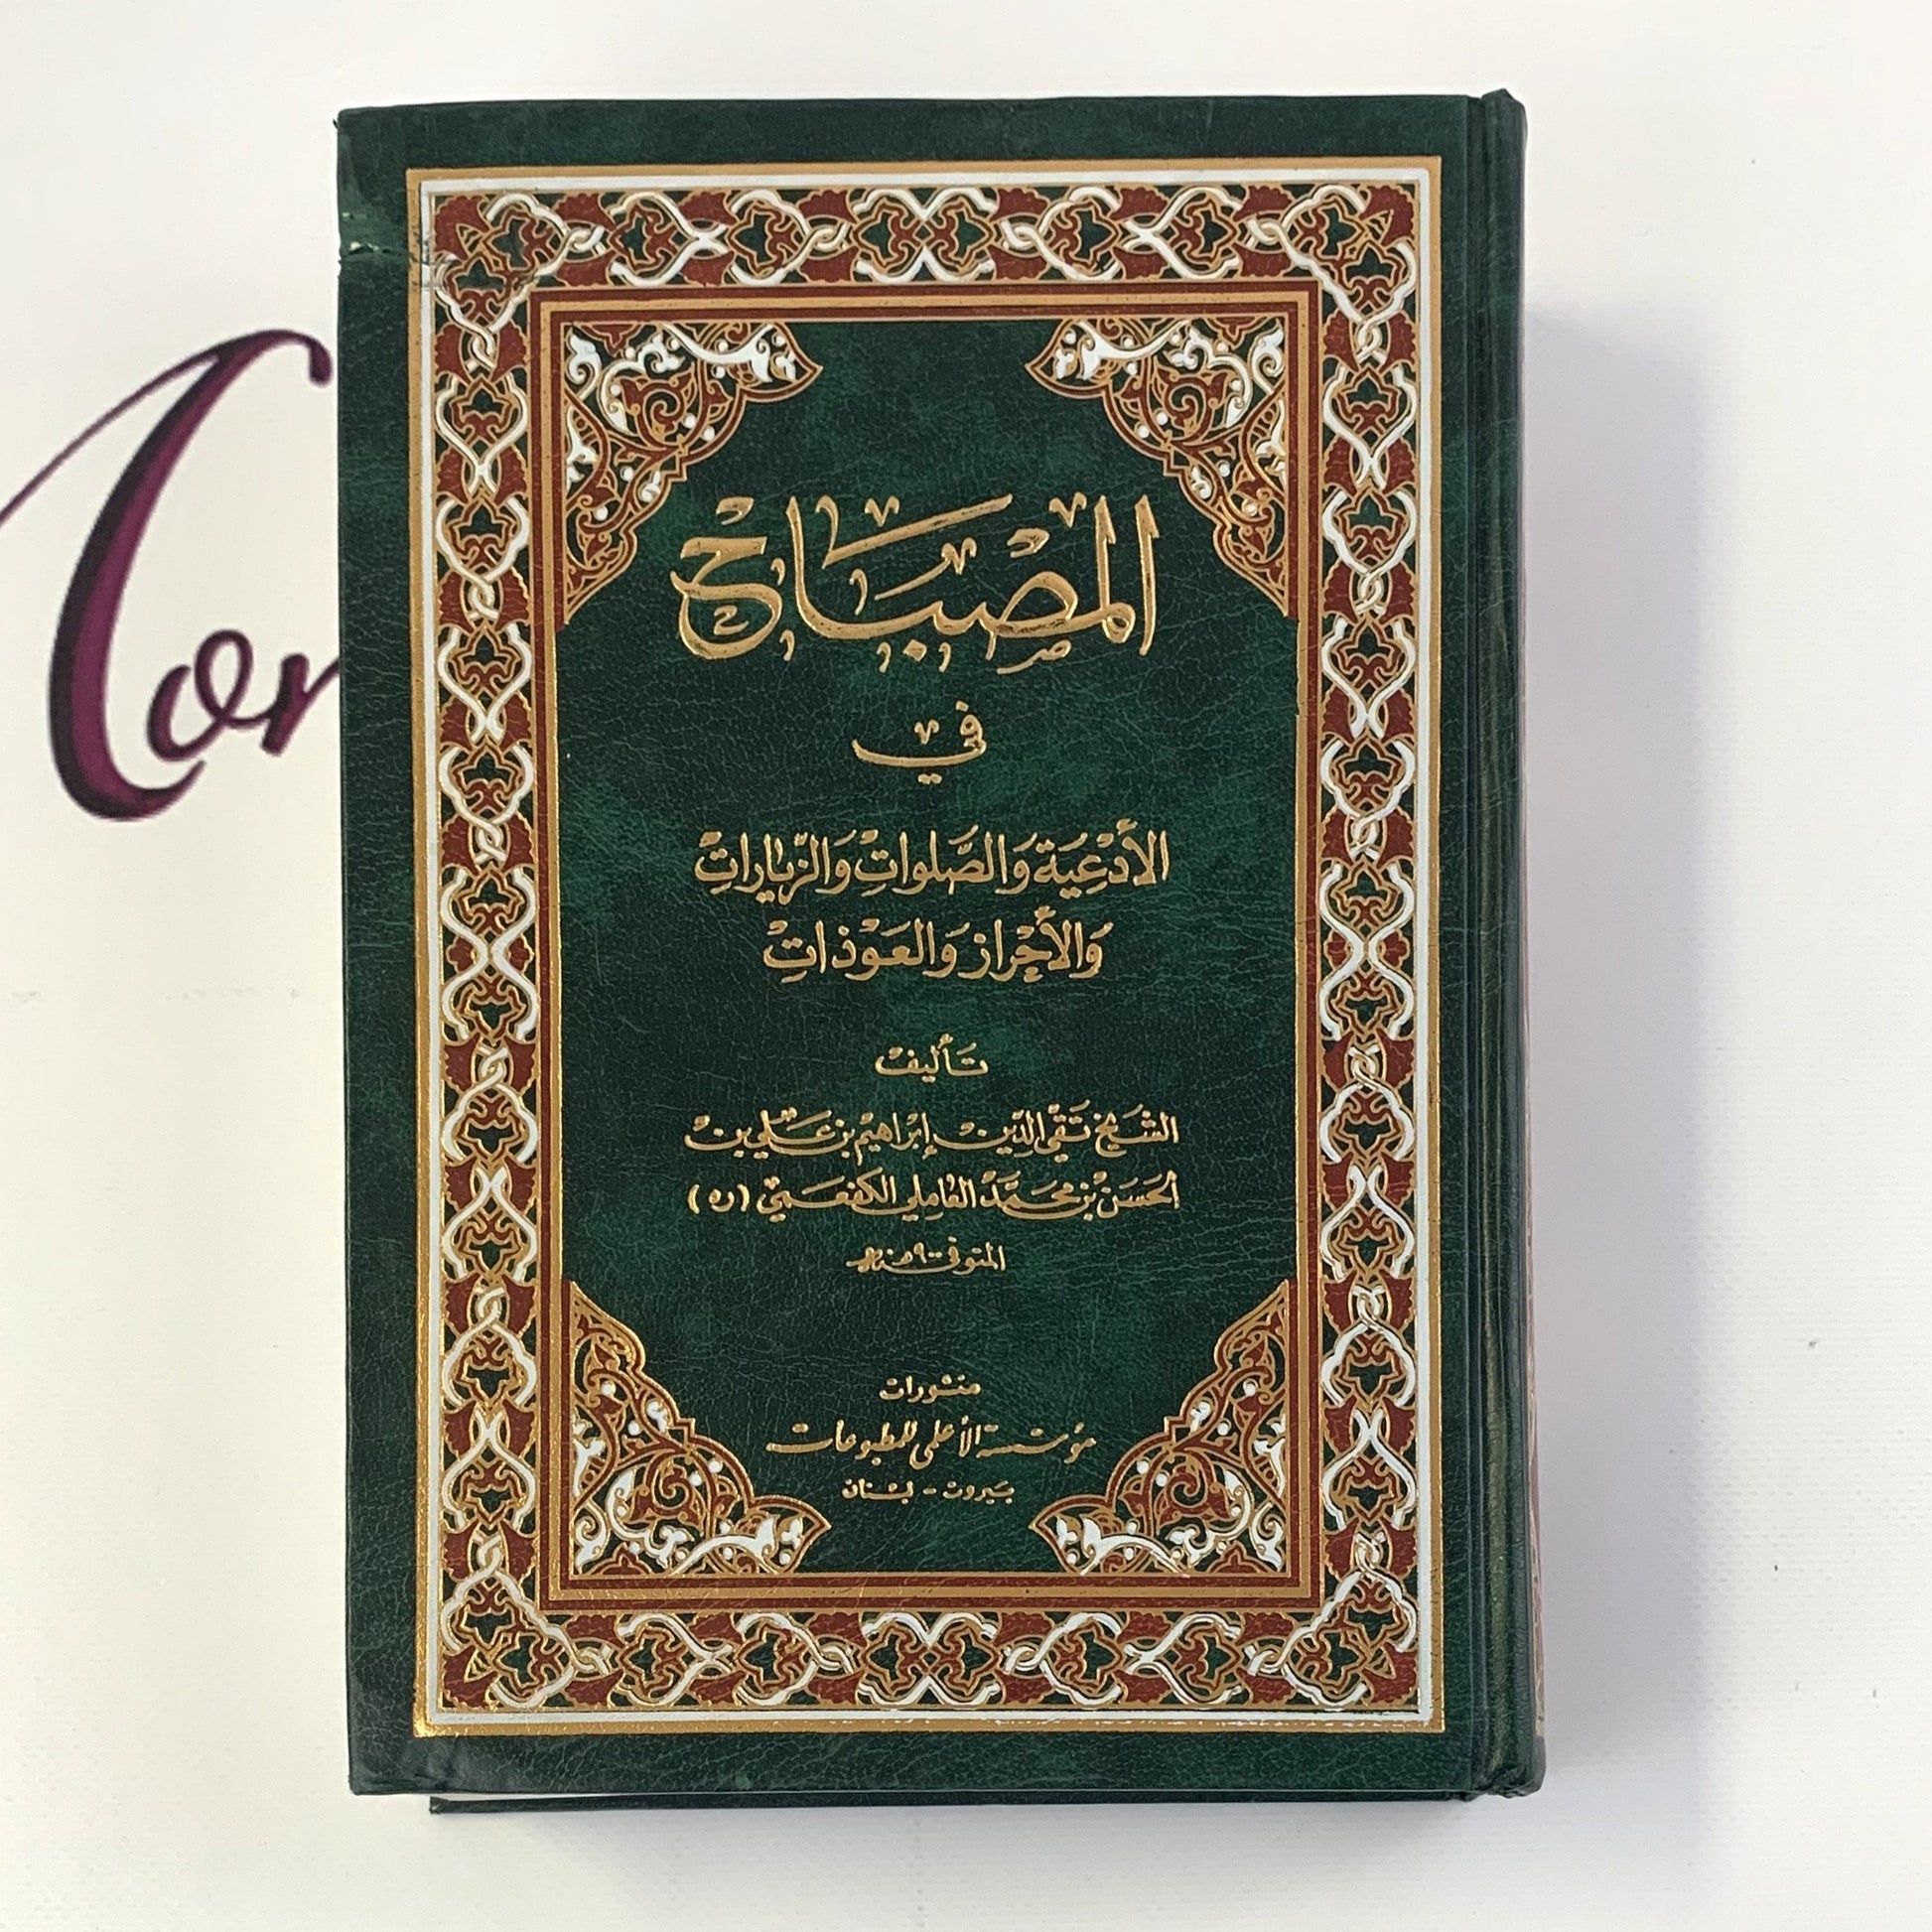 المصباح
في
الأدعية والصلوات والزيارات
والأحراز والعوذات
تأليف
الشيخ تقي الدين إبراهيم بن علي بن
الحسن بن محمد العاملي الكفعمي (ره)
المتوفى
منشورات
مؤسسة الأعلمي للمطبوعات
بيروت - لبنان
Cor